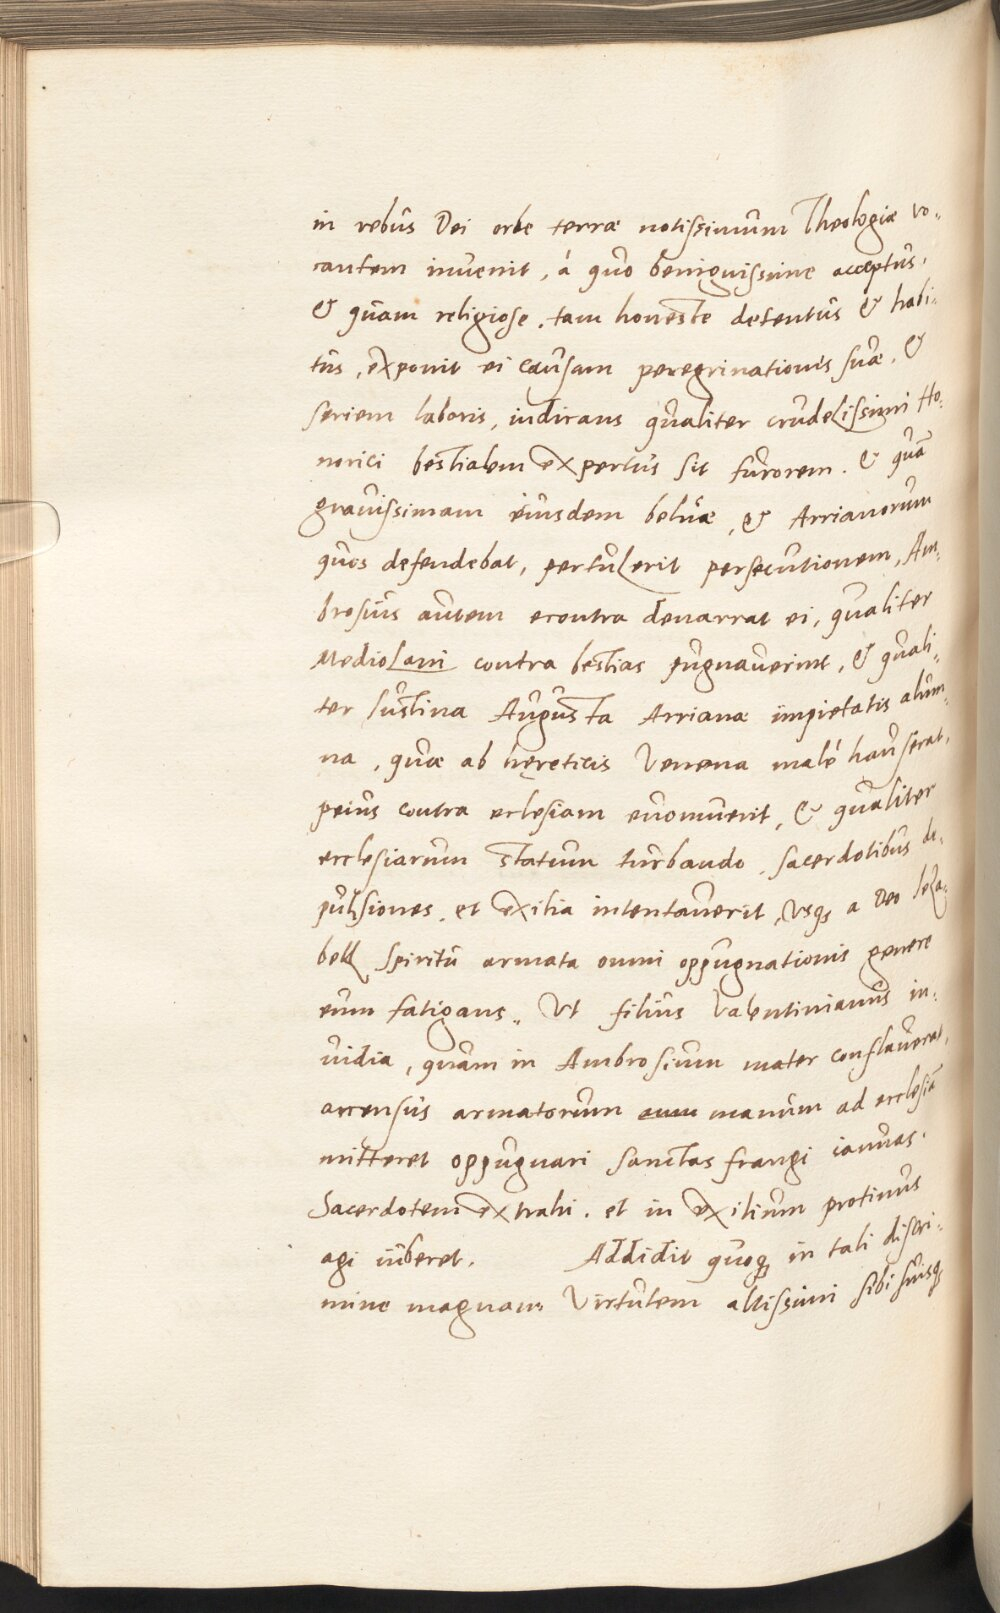 in rebus Dei orbe terræ notissimum Theologiæ vo-
cantem invenit, á quo benignissime acceptus.
& quam religiose, tam honeste detentus & habi-
tus, exponit ei causam peregrinationis suæ. &
seriem laboris, indicans qualiter crudelissimi Ho-
norici bestialem expertus sit furorem. & quā
gravissimam eiusdem beluæ, & Arrianorum
quos defendebat, pertulerit persecutionem, Am-
brosius autem econtra denarrat ei, qualiter
Mediolani contra bestias pugnaverint, & quali-
ter Iustina Augusta Arrianæ impietatis alum-
na, quæ ab hęreticis Venena malé hauserat,
peius contra eclesiam evomuerit, & qualiter
ecclesiarum statum turbando, sacerdotibus de-
pulsiones, et exilia intentaverit, Vsqȝ a Deo Ieza-
bell spiritu armata omni oppugnationis genere
eum fatigans, Vt filius Valentinianus in-
vidia, quam in Ambrosium mater conflaverat,
accensus armatorum manum ad ecclesiā
mitteret oppugnari sanctas frangi ianuas.
Sacerdotem extrahi. et in exilium protinus
agi iuberet. Addidit quoqȝ in tali discri-
mine magnam Virtutem altissimi sibi suisqȝ